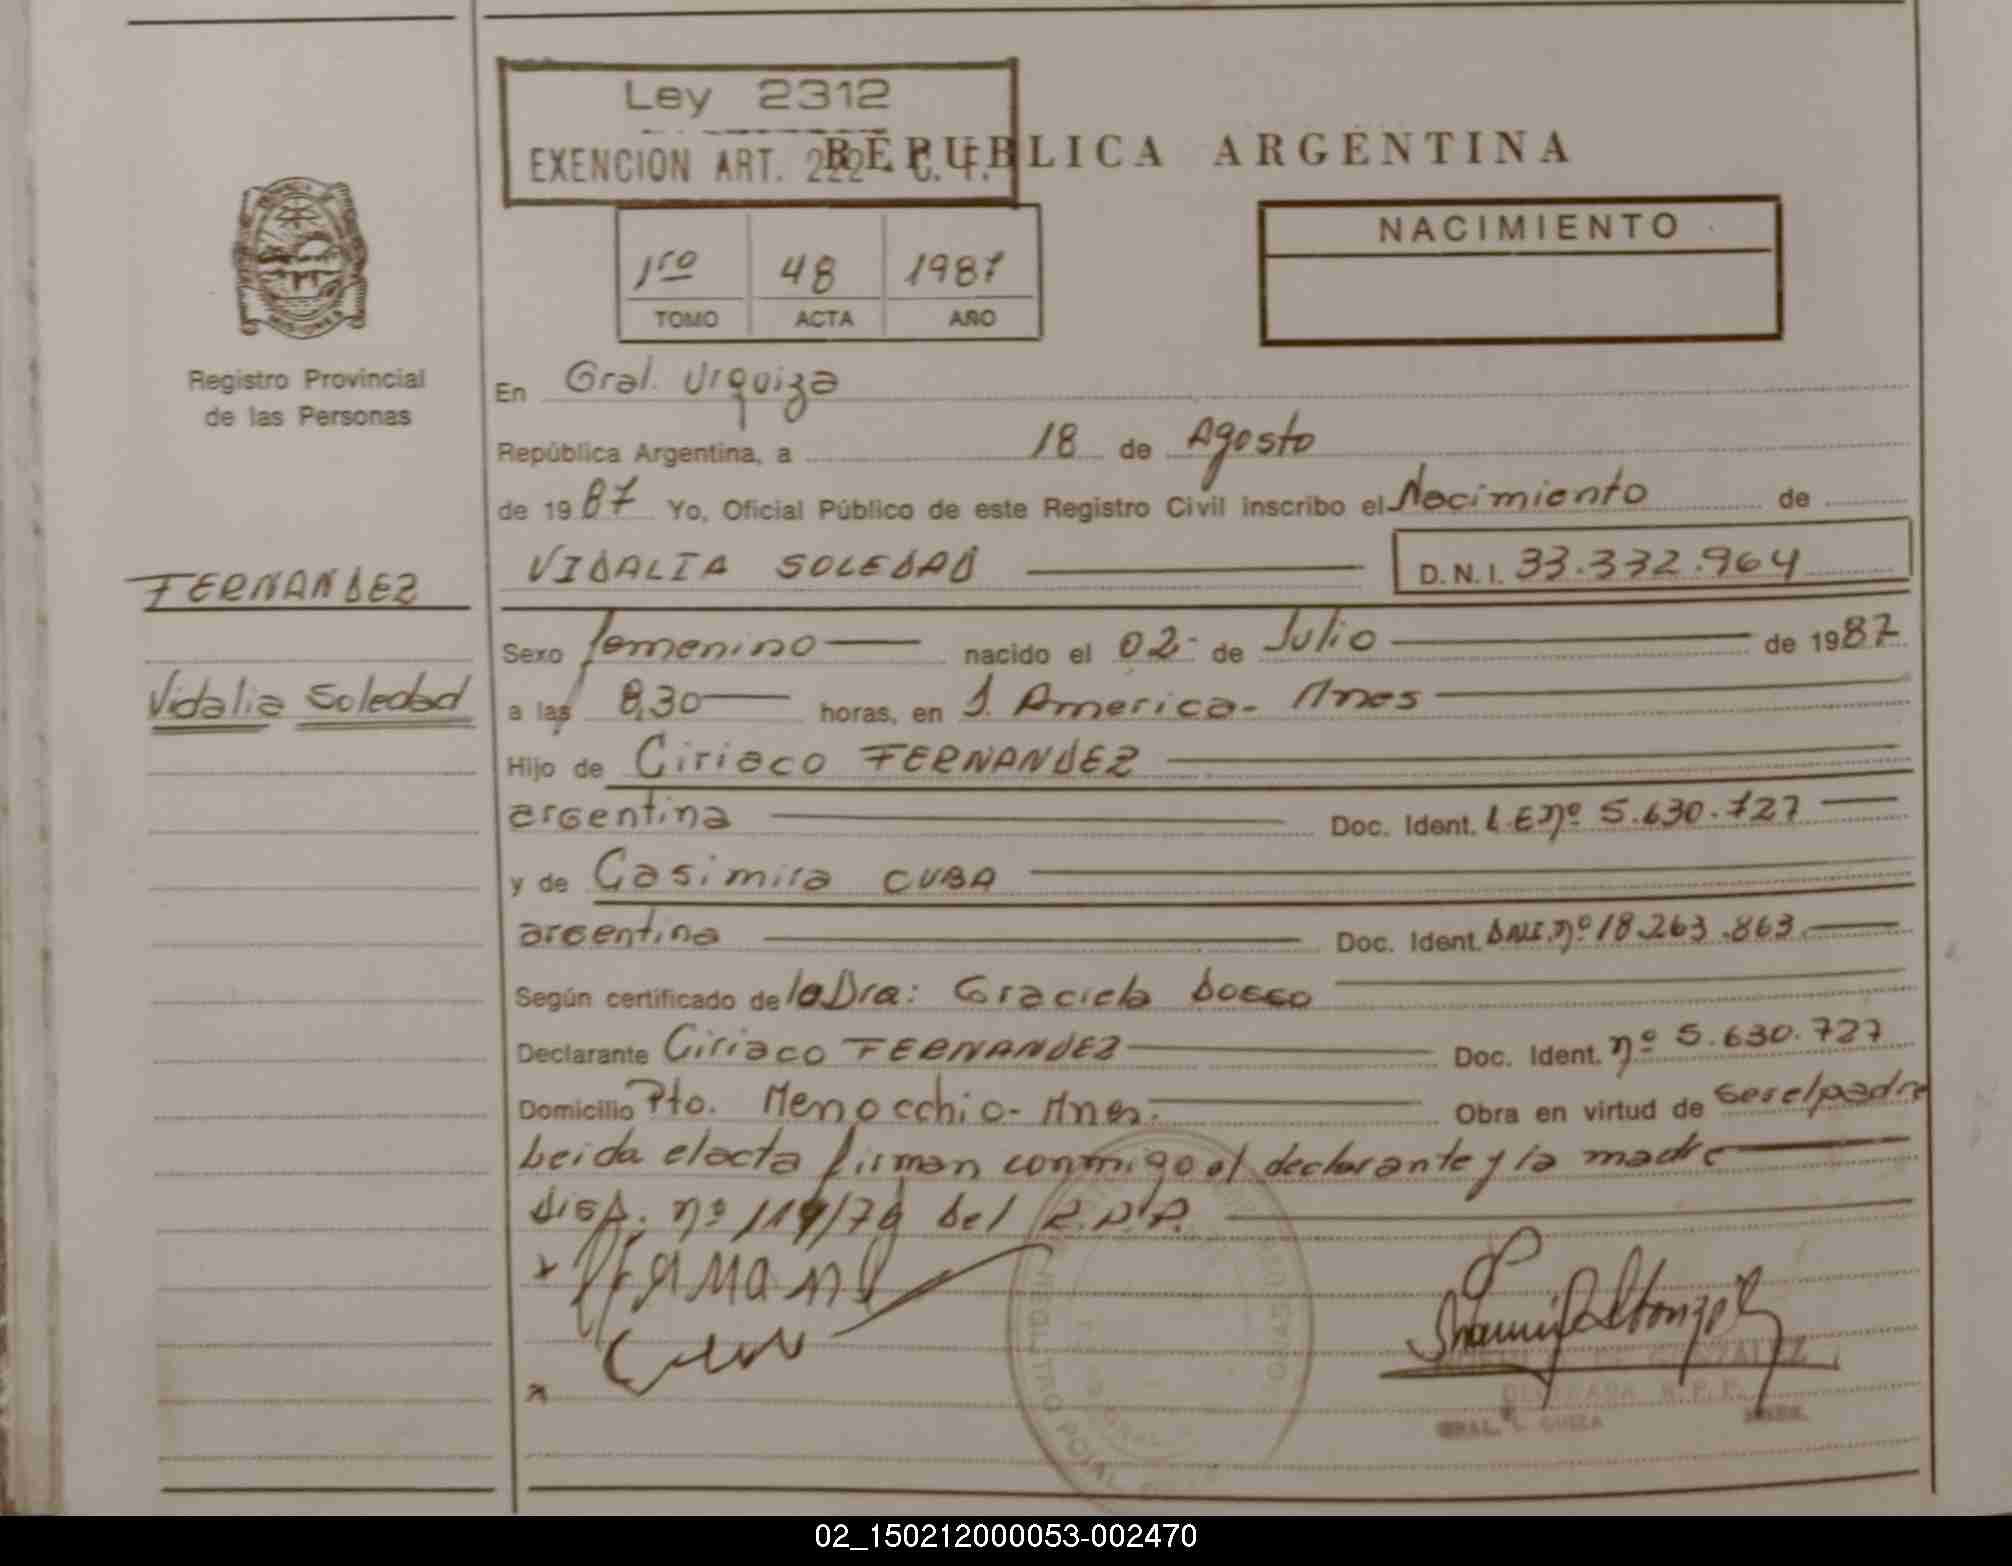 Ley 2312
EXENCION ART. 222 C. F.
REPUBLICA ARGENTINA
MISIONES
Registro Provincial
de las Personas
1ro 48 1987
TOMO ACTA AÑO
NACIMIENTO
En Gral. Urquiza
República Argentina, a 18 de Agosto
de 1987 Yo, Oficial Público de este Registro Civil inscribo el Nacimiento de
FERNANDEZ
Vidalia Soledad
VIDALIA SOLEDAD D.N.I. 33.332.964
Sexo femenino nacido el 02 de Julio de 1987
a las 8,30 horas, en J. America - Mnes
Hijo de Ciriaco FERNANDEZ
argentina Doc. Ident. L.E nº 5.630.727
y de Casimira CUBA
argentina Doc. Ident. DNI. nº 18.263.863
Según certificado de la Dra: Graciela
Declarante Ciriaco FERNANDEZ Doc. Ident. nº 5.630.727
Domicilio Pto. Menocchio - Mnes. Obra en virtud de ser el padre
Leida el acta firman conmigo el declarante y la madre
Disp. nº 119/79 del R.P.P.
GONZALEZ
DELEGADA R.P.P.
GRAL. URQUIZA MNES.
02_150212000053-002470